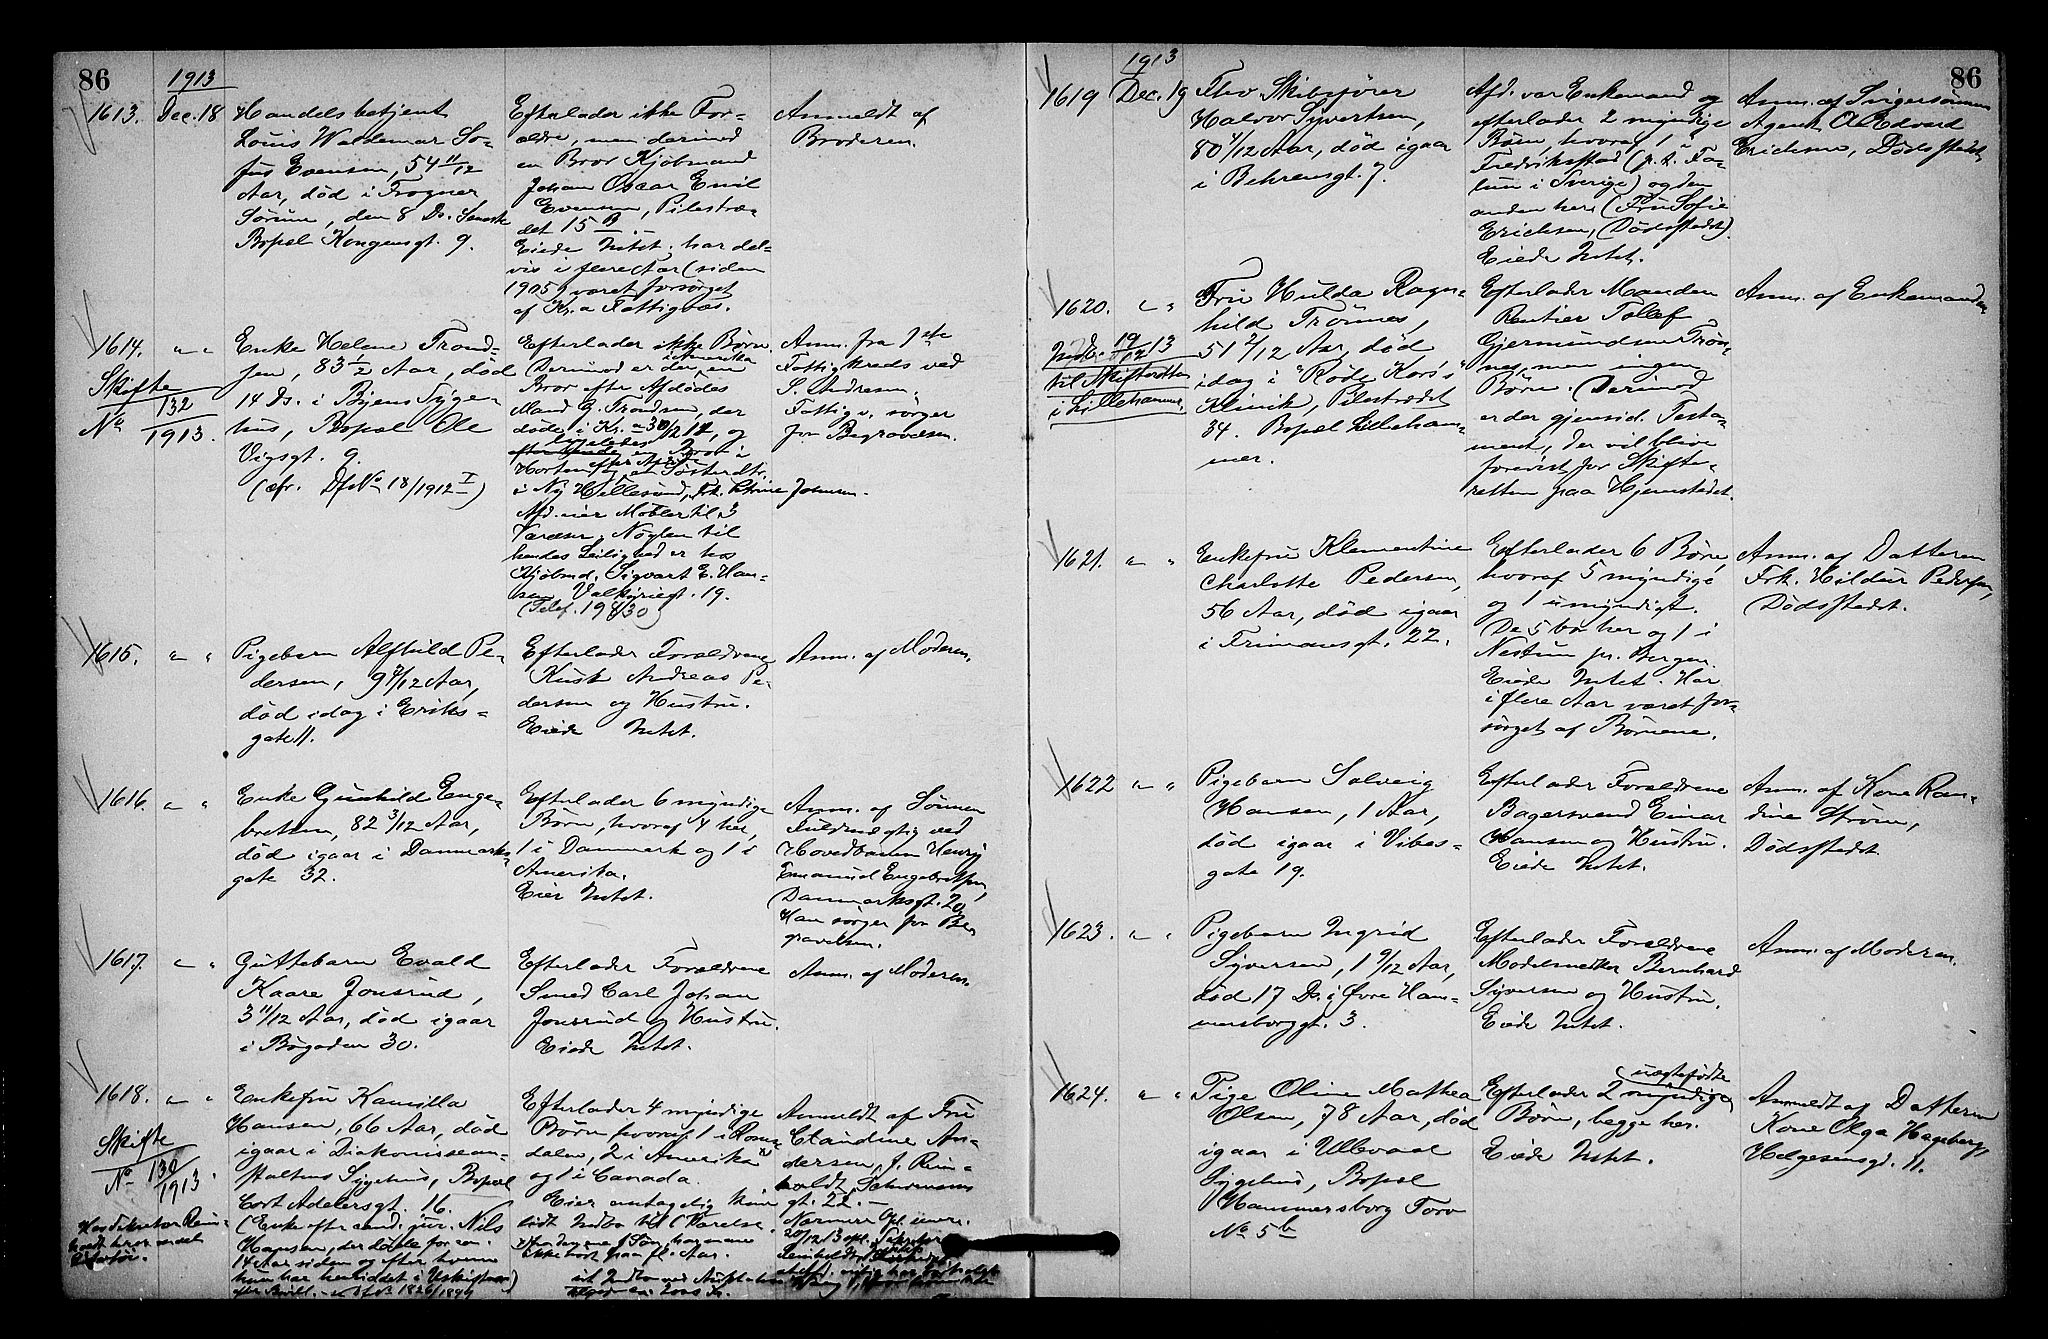 86
1913
1613. Dec. 18
Handelsbetjent
Louis Waldemar So-
fus Evensen, 54 11/12
Aar, død i Frogner
Sørum, den 8 Ds.
Bopæl Kongensgt. 9.
Efterlader ikke For-
ældre, men derimod
en Bror Kjøbmand
Johan Oscar Emil
Evensen, Pilestræ-
det 15 B.
Eiede Intet, har del-
vis i flere Aar (siden
1905) været forsørget
af Kr.a Fattigvæs.
Anmeldt af
Broderen.
1614. " "
Skifte
No 132
1913.
Enke Helene Trond-
sen, 83 1/2 Aar, død
14 Ds. i Byens Syge-
hus, Bopæl Ole
Vigsgt. 9.
(cfr. Df. No 18/1912 I)
Efterlader ikke Børn.
Derimod er der en i Amerika
Bror efter Afdødes
Mand G. Trondsen, der
døde i Kr.a 30/12 11, og
ligeledes
en Bror i
Horten efter Afdøde
og en Søsterdtr.
i Ny Hellesund, Frk. Johnsen.
Afd. eier Møbler til 3
Værelser. Nøglen til
hendes Leilighed er hos
Kjøbmd. Sigvart E. Han-
sen Valkyriegt. 19.
(Telef. 19830)
Anm. fra 7de
Fattigkreds ved
S. Andresen,
Fattigv. sørger
for Begravelsen.
1615. " "
Pigebarn Alfhild Pe-
dersen, 9 7/12 Aar,
død idag i Eriks-
gate 11.
Efterlader Forældrene
Kusk Andreas Pe-
dersen og Hustru.
Eiede Intet.
Anm. af Moderen.
1616. " "
Enke Gunhild Enge-
bretsen, 82 3/12 Aar,
død igaar i Danmarks-
gate 32.
Efterlader 6 myndige
Børn, hvoraf 4 her,
1 i Danmark og 1 i
Amerika.
Eier Intet.
Anm. af Sønnen
Fuldmægtig ved
Hovedbanen Henry
Emanuel Engebretsen,
Danmarksgt. 20
Han sørger for Be-
gravelsen.
1617. " "
Guttebarn Evald
Kaare Jonsrud,
3 11/12 Aar, død igaar
i Bøgaden 30.
Efterlader Forældrene
Smed Carl Johan
Jonsrud og Hustru.
Eiede Intet.
Anm. af Moderen.
1618. " "
Skifte
No 130
1913.
Enkefru Kamilla
Hansen, 66 Aar, død
igaar i Diakonissean-
staltens Sygehus, Bopæl
Cort Adelersgt. 16.
(Enke efter cand. jur. Nils
Hansen, der døde for ca.
14 Aar siden og efter hvem
hun har hensiddet i Uskiftet
Efterlader 4 myndige
Børn hvoraf 1 i Roms-
dalen, 2 i Amerika
og 1 i Canada.
Eier antagelig kun
lidt Indbo til 1 Værelse.
ikke hørt fra fl. Aar.
Anmeldt af Fru
Claudine An-
dersen, J. Rein-
holdt, Schwensens
gt. 22. -
1913
86
1619 Dec. 19
Fhv. Skibsfører
Halvor Syvertsen,
80 4/12 Aar, død igaar
i Behrensgt. 7.
Afd. var Enkemand og
efterlader 2 myndige
Børn, hvoraf 1 i
Fredrikstad (p.t. Fa-
lun i Sverige) og den
anden her (Fru Sofie
Erichsen, (Dødsstedet).
Eiede Intet.
Anm. af Svigersønnen
Agent A. Edvard
Erichsen, Dødsstedet,
1620. " "
19/12 13
til Skifteretten
i Lillehammer.
Fru Hulda Ragn-
hild Trønnes,
51 2/12 Aar, død
idag i "Røde Kors"
Klinik, Pilestrædet
34. Bopæl Lilleham-
mer.
Efterlader Manden
Rentier Tollef
Gjermundsen Trøn-
nes, men ingen
Børn. (Derimod
er der gjensid. Testa-
ment, der vil blive
forevist for Skifte-
retten paa Hjemstedet.
Anm. af Enkemanden
1621. " "
Enkefru Klementine
Charlotte Pedersen,
56 Aar, død igaar
i Frimansgt. 22.
Efterlader 6 Børn,
hvoraf 5 myndige
og 1 umyndigt.
De 5 bo her og 1 i
Nestun pr. Bergen.
Eiede Intet. Har
i flere Aar været for-
sørget af Børnene.
Anm. af Datteren
Frk. Hildur Pedersen,
Dødsstedet.
1622 " "
Pigebarn Solveig
Hansen, 1 Aar,
død igaar i Vibes-
gate 19.
Efterlader Forældrene
Bagersvend Einar
Hansen og Hustru.
Eiede Intet.
Anm. af Kone Ran-
dine Strøm,
Dødsstedet.
1623. " "
Pigebarn Ingrid
Syversen, 1 9/12 Aar,
død 17 Ds. i Øvre Ham-
mersborggt. 3.
Efterlader Forældrene
Modelsnedker Bernhard
Syversen og Hustru.
Eiede Intet.
Anm. af Moderen.
1624. " "
Pige Oline Mathea
Olsen, 78 Aar, død
igaar i Ullevaal
Sygehus, Bopæl
Hammersborg Torv
No 5b
Efterlader 2 uægtefødte myndige
Børn, begge her.
Eiede Intet.
Anmeldt af Datteren
Kone Olga Hageberg,
Helgesensgd. 11.